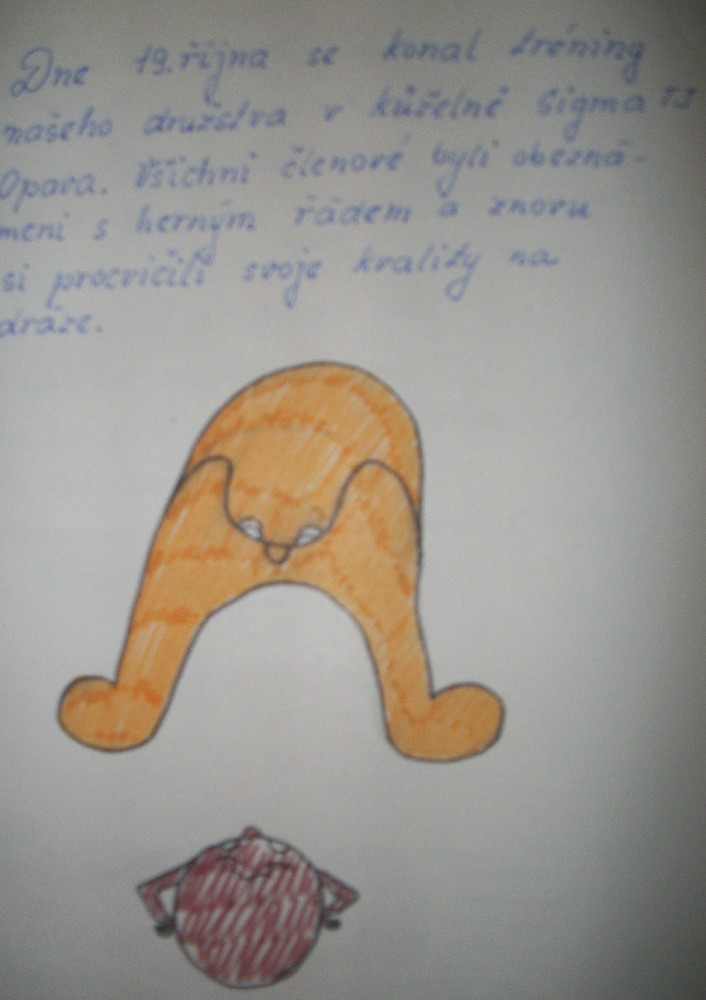 Dne 19. října se konal tréning
našeho družstva v kůželně Sigma TJ
Opava. Všichni členové byli obezná-
meni s herným řádem a znovu
si procvičili svoje kvality na
dráze.